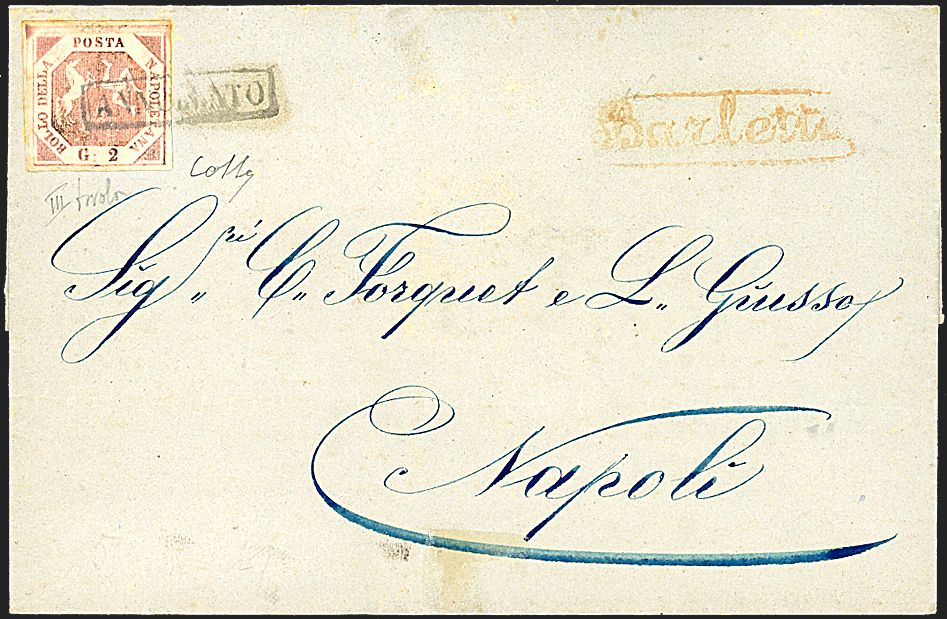 POSTA
BOLLO DELLA
NAPOLETANA
G. 2
ANNULLATO
Barletta
III tavola
Sig.ri C. Forquet e L. Giusso
Napoli